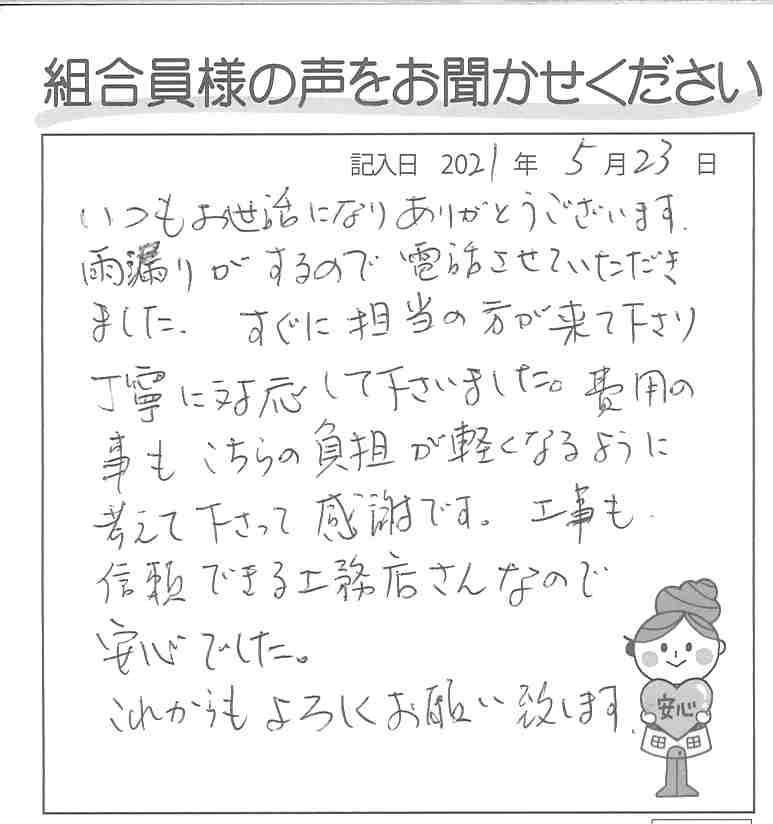 組合員様の声をお聞かせください
記入日 2021年 5月23日
いつもお世話になりありがとうございます.
雨漏りがするので電話させていただき
ました. すぐに担当の方が来て下さり
丁寧に対応して下さいました。費用の
事もこちらの負担が軽くなるように
考えて下さって感謝です。工事も
信頼できる工務店さんなので
安心でした。
これからもよろしくお願い致します.
安心